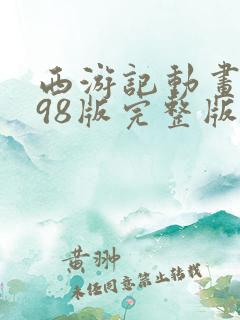 西游記動畫
98版完整版
黄翀
未经同意禁止转载